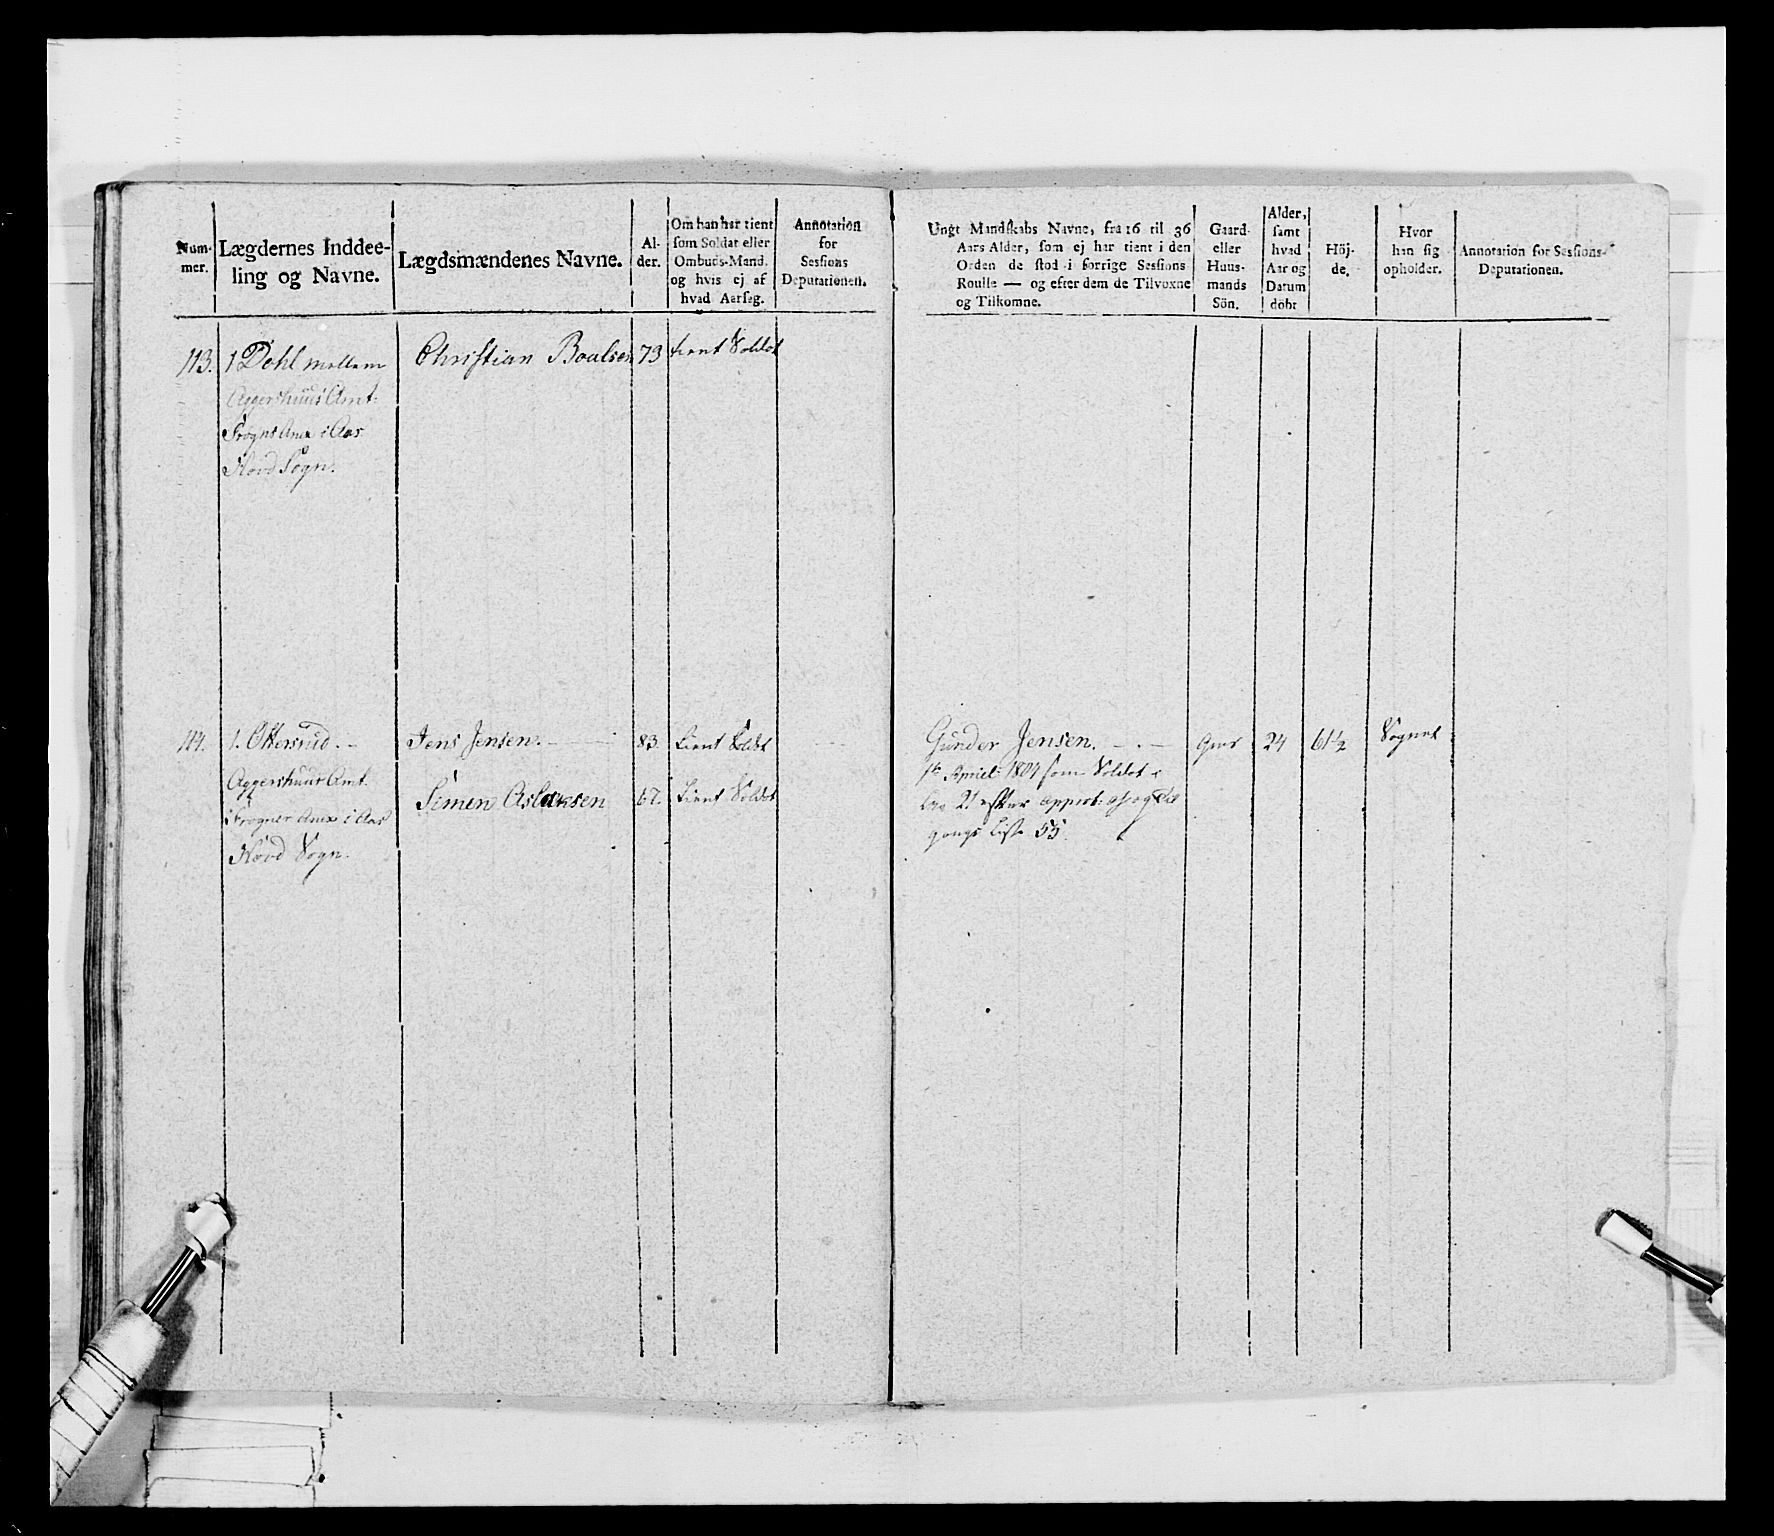 Num-
mer.
Lægdernes Inddee-
ling og Navne.
Lægdsmændenes Navne.
Al-
der.
Om han har tient
som Soldat eller
Ombuds-Mand.
og hvis ej af
hvad Aarseg.
Annotation
for
Sessions
Deputationen.
Ungt Mandskabs Navne, fra 16 til 36
Aars Alder, som ej har tient i den
Orden de stod i forrige Sessions
Roulle — og efter dem de Tilvoxne
og Tilkomne.
Gaard-
eller
Huus-
mands
Sön.
Alder,
samt
hvad
Aar og
Datum
döbt
Höj-
de.
Hvor
han sig
opholder.
Annotation for Sessions-
Deputationen.
113. 1 Dehl mellem Christian Boalsen 73 tient Soldat
Aggershuus Amt
Frogns Anex i Aas
Hovd Sogn.
114. 1. Ottersrud. Jens Jensen. 83. tient Soldat Gunder Jensen. 24 61½ Sognet
1te April 1804 som Soldat
Aggershuus Amt.
Simen Aslaksen 67. tient Soldat 21 efter approb: af og Til
i Frogner Anex i Aas
gangs Liste 55.
Hovd Sogn.